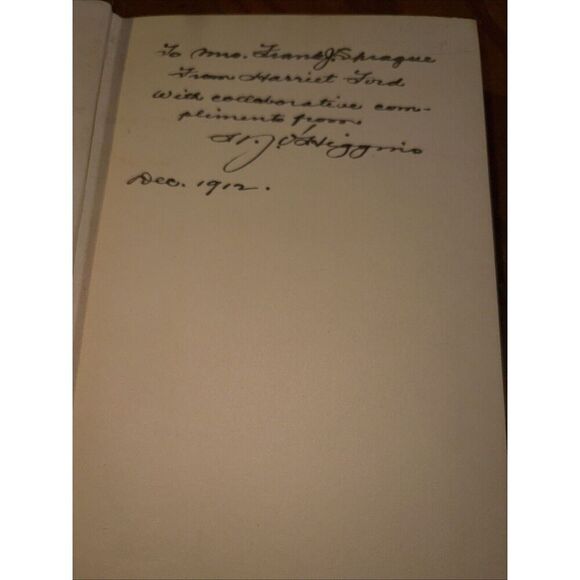 To Mrs. Frank J. Sprague
From Harriet Ford
With collaborative com-
pliments from
H. J. O'Higgins
Dec. 1912.